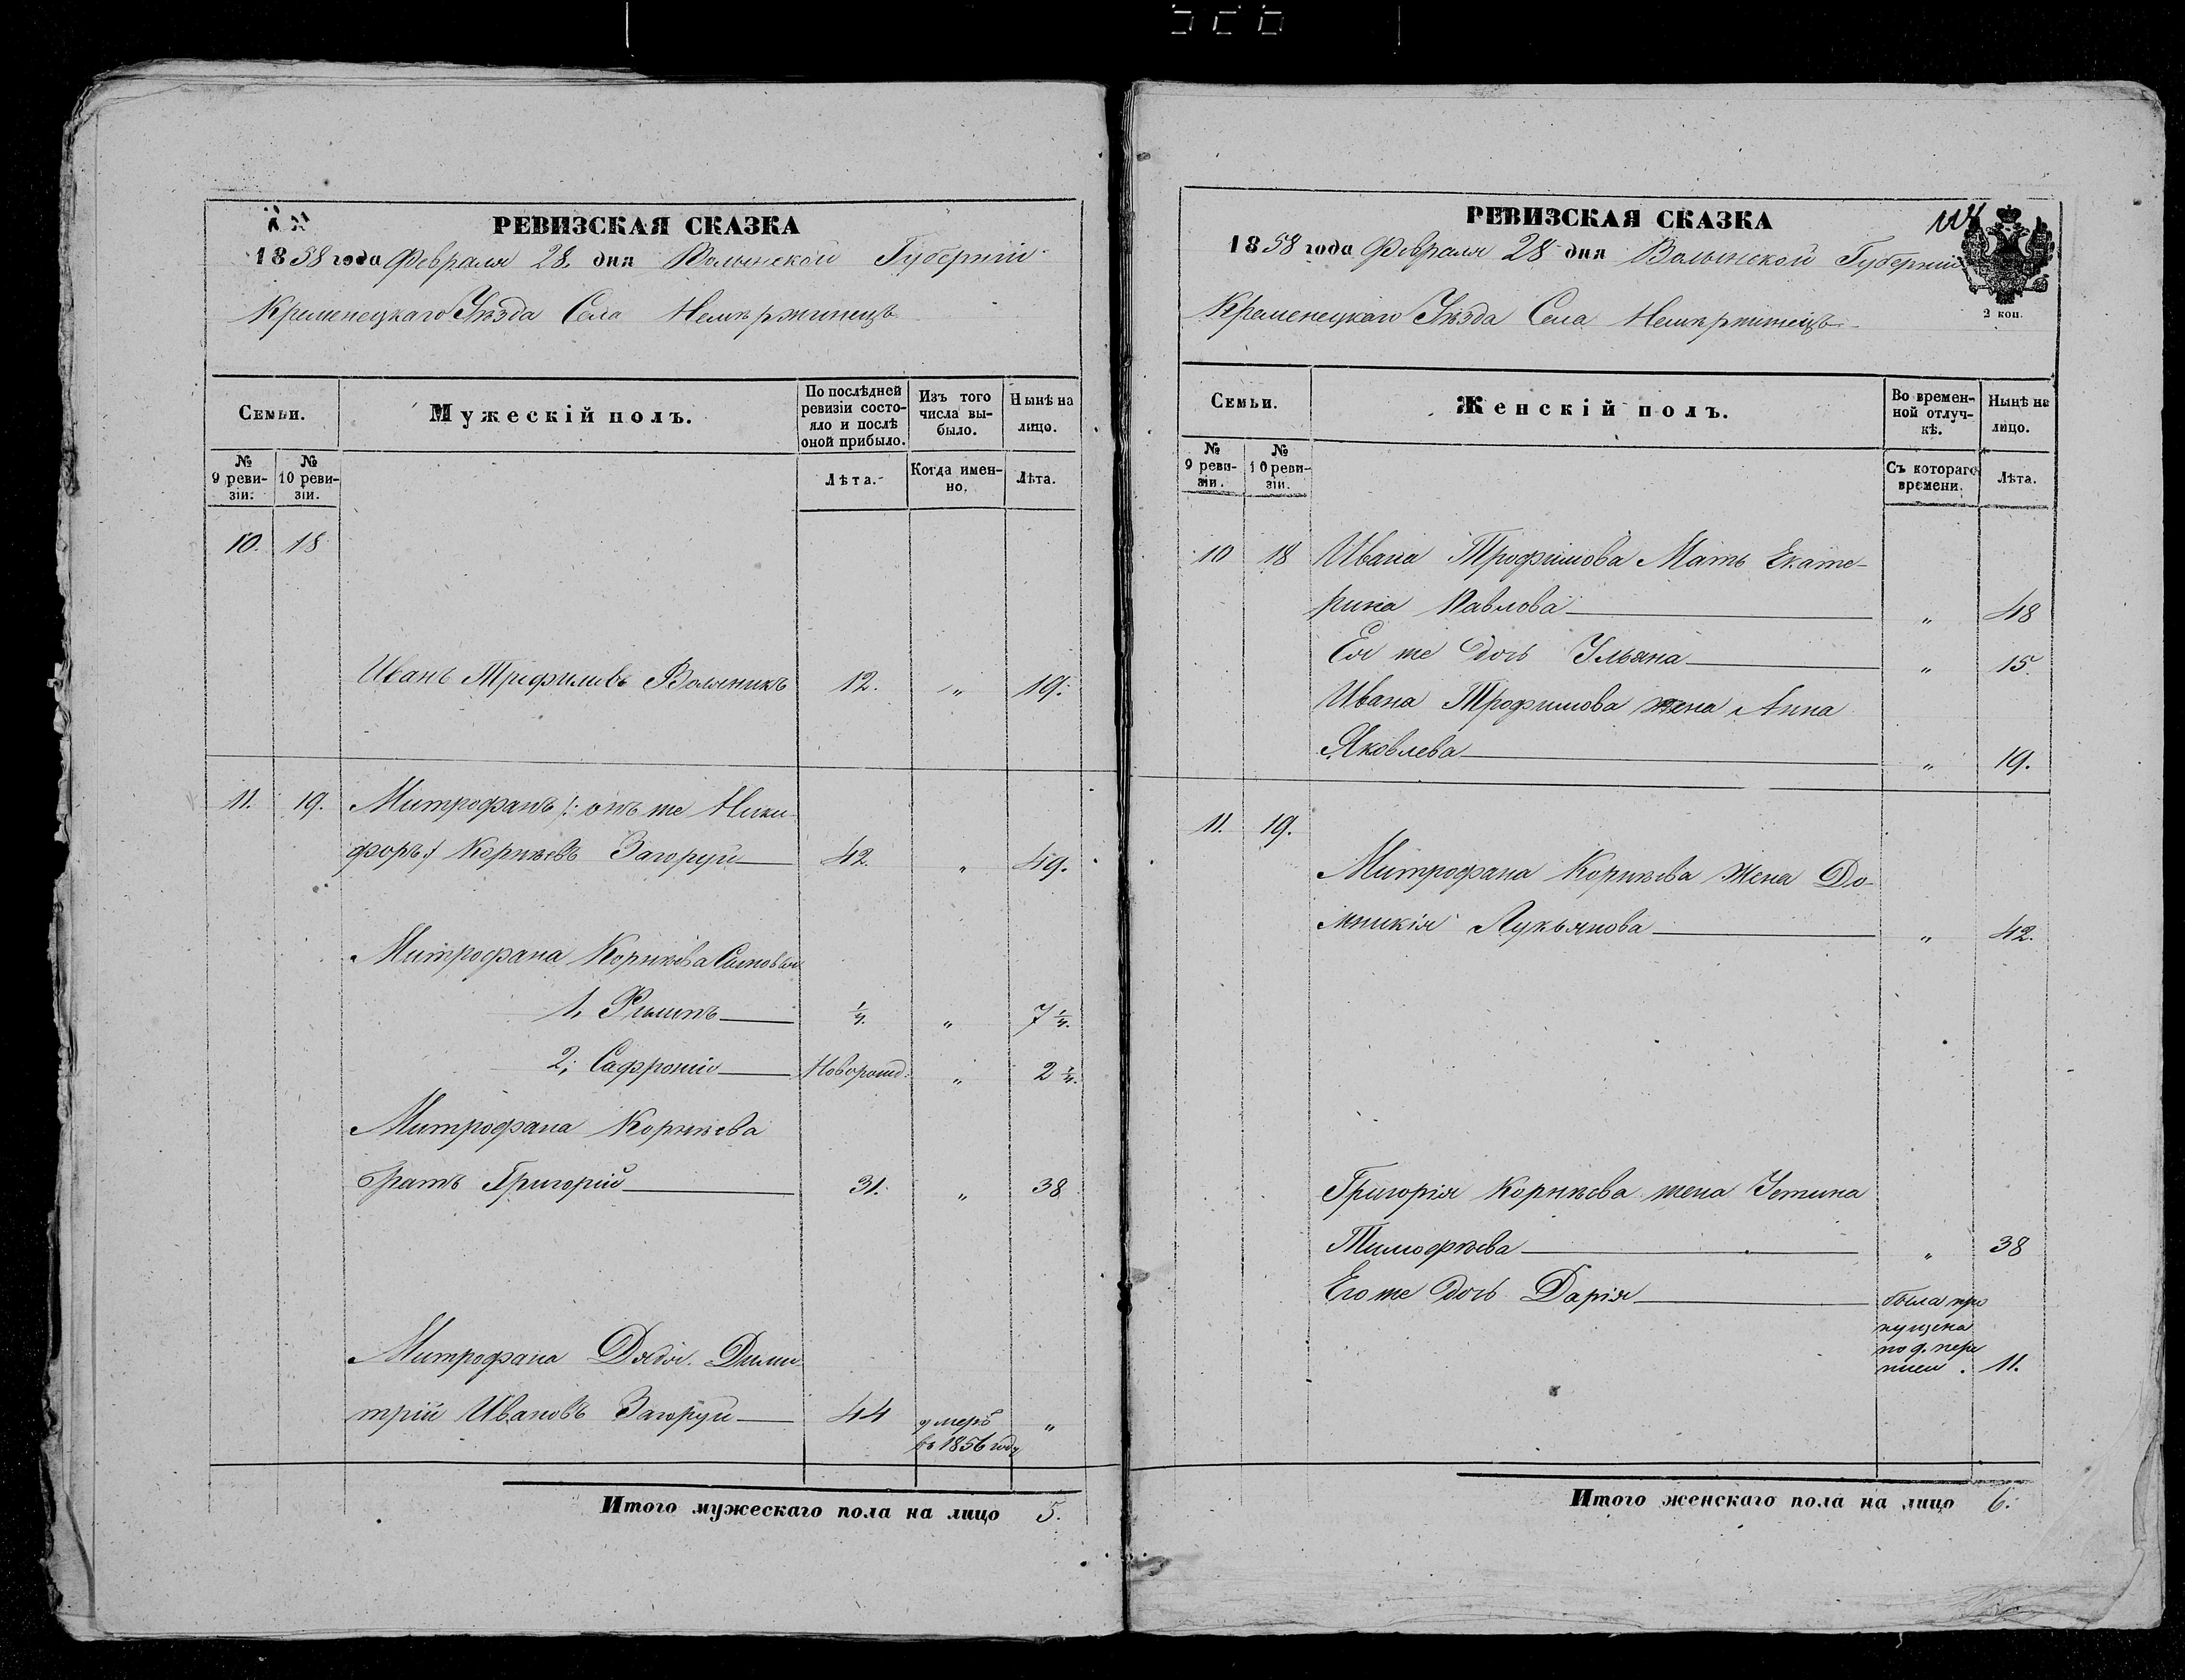 РЕВИЗСКАЯ СКАЗКА
1858 года Февраля 28. дня Волынской Губерніи
Кременецкаго Уѣзда Села Немѣржинецъ
Семьи.
Мужескій полъ.
По послѣдней ревизіи состояло и послѣ оной прибыло.
Изъ того числа выбыло.
Нынѣ на лицо.
№ 9 ревизіи.
№ 10 ревизіи.
Лѣта.
Когда именно.
Лѣта.
10. 18
Иванъ Трофимовъ Воляникъ 12. „ 19.
11. 19. Митрофанъ /: онъ же Ники-
форъ :/ Корнѣевъ Загоруй 42. „ 49.
Митрофана Корнѣева Сыновья
1, Филипъ 1/4. „ 7 1/4.
2, Сафроній Новорожд. „ 2 1/4.
Митрофана Корнѣева
братъ Григорій 31. „ 38
Митрофана Дядя Дими-
трій Ивановъ Загоруй 44 умеръ „
въ 1856 году
Итого мужескаго пола на лицо 5.
РЕВИЗСКАЯ СКАЗКА
1858 года Февраля 28 дня Волынской Губерніи
2 коп.
Кременецкаго Уѣзда Села Немѣржинецъ
Семьи.
Женскій полъ.
Во временной отлучкѣ.
Нынѣ на лицо.
№ 9 ревизіи.
№ 10 ревизіи.
Съ котораго времени.
Лѣта.
10 18 Ивана Трофимова Мать Екате-
рина Павлова „ 48
Ея же дочь Ульяна „ 15.
Ивана Трофимова жена Анна
Яковлева „ 19.
11. 19.
Митрофана Корнѣева жена До-
мникія Лукьянова „ 42.
Григорія Корнѣева жена Устина
Тимофѣева „ 38
Его же дочь Дарія была про
пущена
по 9. пере
писи . 11.
Итого женскаго пола на лицо 6.